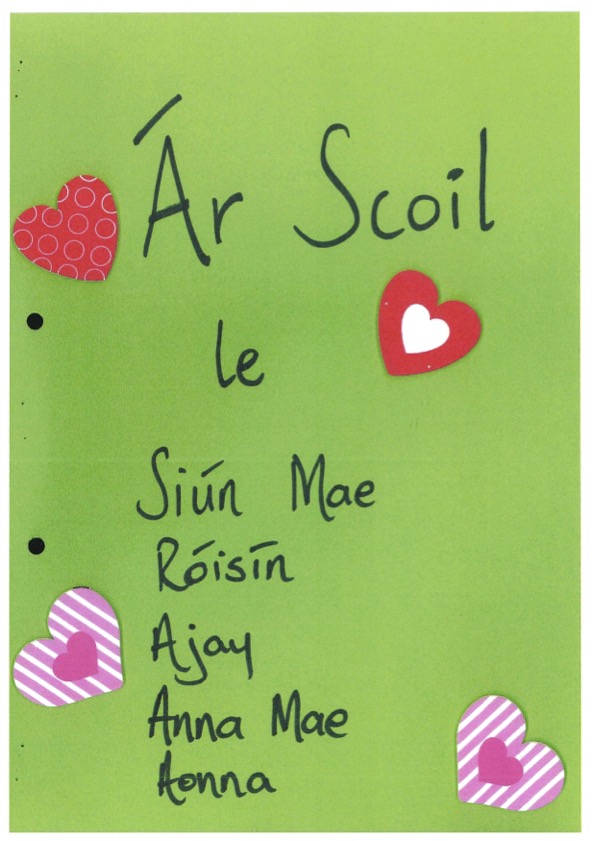 Ár Scoil
le
Siún Mae
Róisín
Ajay
Anna Mae
Aonna